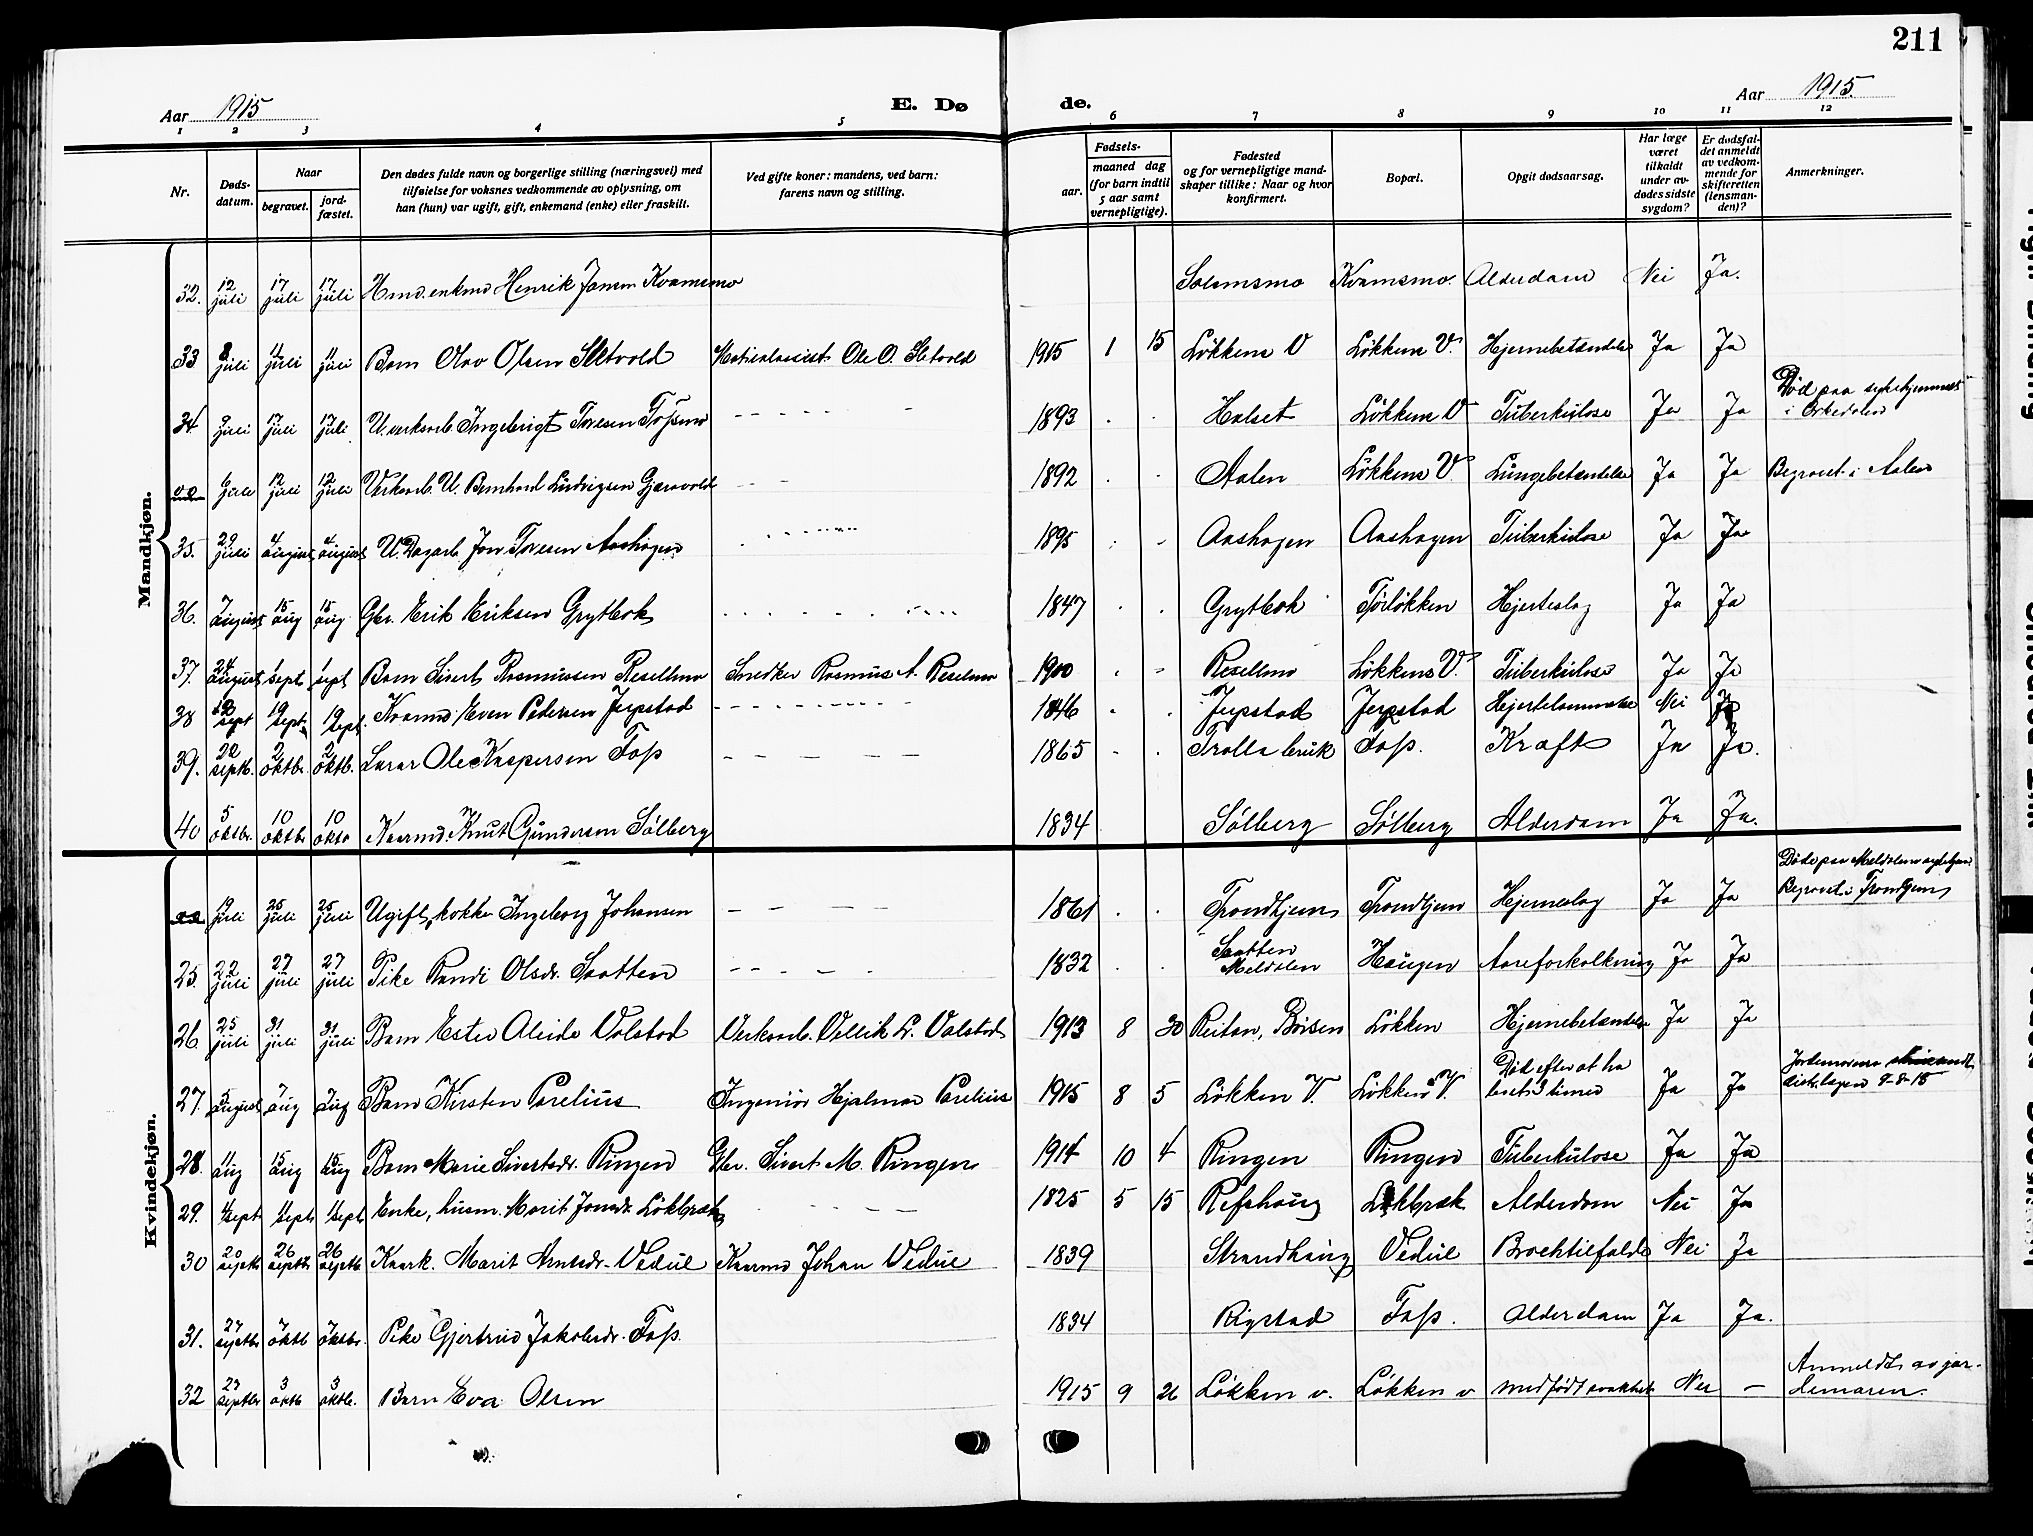 211
Aar 1915
E. Dø de.
Aar 1915.
1 2 3 4 5 6 7 8 9 10 11 12
Nr.
Døds-
datum.
Naar
begravet.
jord-
fæstet.
Den dødes fulde navn og borgerlige stilling (næringsvei) med
tilføielse for voksnes vedkommende av oplysning, om
han (hun) var ugift, gift, enkemand (enke) eller fraskilt.
Ved gifte koner: mandens, ved barn:
farens navn og stilling.
Fødsels-
aar.
maaned dag
(for barn indtil
5 aar samt
vernepligtige).
Fødested
og for vernepligtige mand-
skaper tillike: Naar og hvor
konfirmert.
Bopæl.
Opgit dødsaarsag.
Har læge
været
tilkaldt
under av-
dødes sidste
sygdom?
Er dødsfal-
det anmeldt
av vedkom-
mende for
skifteretten
(lensman-
den)?
Anmerkninger.
Mandkjøn.
32. 12 juli 17 juli 17 juli Henrik Jonsen Kvamsmo Kvamsmo. Alderdom Nei Ja.
33 juli 11 juli 11 juli Barn Olav Olsen Sletvold Ole O. Sletvold 1915 1 15 Løkkens V Løkkens V. Hjernebetændelse Ja Ja
34 juli 17 juli 17 juli U. verksarb. Ingebrigt Toresen Fossmo 1893 Halset Løkkens V Tuberkulose Ja Ja Død paa sykehjemmet
i Orkedalen
juli 12 juli 12 juli Verksarb. U. Bernhard Ludvigsen Gjærvold 1892 Aalen Løkkens V. Lungebetændelse Ja Ja Begravet i Aalen
35. 29 juli 4 august 4 august U. Dagarb. Jon Toresen Aashagen 1895 Aashagen Aashagen Tuberkulose Ja Ja
36. 7 august 15 aug 15 aug Gbr. Erik Eriksen Grytbak 1847 Grytbak Hjerteslag Ja Ja
37. 24 august 1 sept 1 sept Barn Sivert Rasmussen Resellmo Snedker Rasmus A. Reselmo 1900 Resellmo Løkkens V. Tuberkulose Ja Ja
38 12 sept 19 sept. 19 sept. Kaarmd. Even Pedersen Jerpstad 1846 Jerpstad Jerpstad Hjertelammelse Nei Ja
39. 22 septb. 2 oktbr. 2 oktb. Lærer Ole Kaspersen Foss 1865 Trolla bruk Foss. Kræft Ja Ja.
40 5 oktbr. 10 oktbr 10 oktbr Kaarmd. Knut Gundersen Sølberg 1834 Sølberg Sølberg Alderdom Ja Ja.
Kvindekjøn.
19 juli 25 juli 25 juli Ugift, kokke Ingeborg Johansen 1861 Trondhjem Trondhjem Hjerneslag Ja Ja Døde paa Meldalens sykehjem
Begravet i Trondhjem
25. 22 juli 27 juli 27 juli Pike Randi Olsdr. Saatten 1832 Saatten
Meldalen Haugen Aareforkalkning Ja Ja
26 25 juli 31 juli 31 juli Barn Ester Alvide Valstad Verksarb. Vellik L. Valstad 1913 8 30 Reitan, Børsen Løkken Hjernebetændelse Ja Ja
27. 5 august 7 aug 7 aug Barn Kirsten Parelius Ingeniør Hjalmar Parelius 1915 8 5 Løkken V. Løkkens V. Død efter at ha
levet 3 timer Ja Ja Jordemoren
9-8-15
28. 11 aug 15 aug 15 aug Barn Marie Sivertsdr. Ringen Gbr. Sivert M. Ringen 1914 10 4 Ringen Ringen Tuberkulose Ja Ja
29. sept 11 sept 11 sept Enke, husm. Marit Jonsdr. Løkbræk 1825 5 15 Refshaug Løkbræk Alderdom Nei Ja
30 20 septb 26 septbr 26 septb Kaark. Marit Arntsdr. Vedul Kaarmd Johan Vedul 1839 Strandhaug Vedul Broktilfælde Nei Ja
31. 27 septbr 7 oktb 7 oktbr. Pike Gjertrud Jakobsdr. Foss. 1834 Rigstad Foss. Alderdom Ja Ja.
32 27 septbr 3 oktb 3 oktb. Barn Eva Olsen 1915 9 26 Løkken v. Løkken v medfødt svakhet Nei — Anmeldt av jor-
demoren.